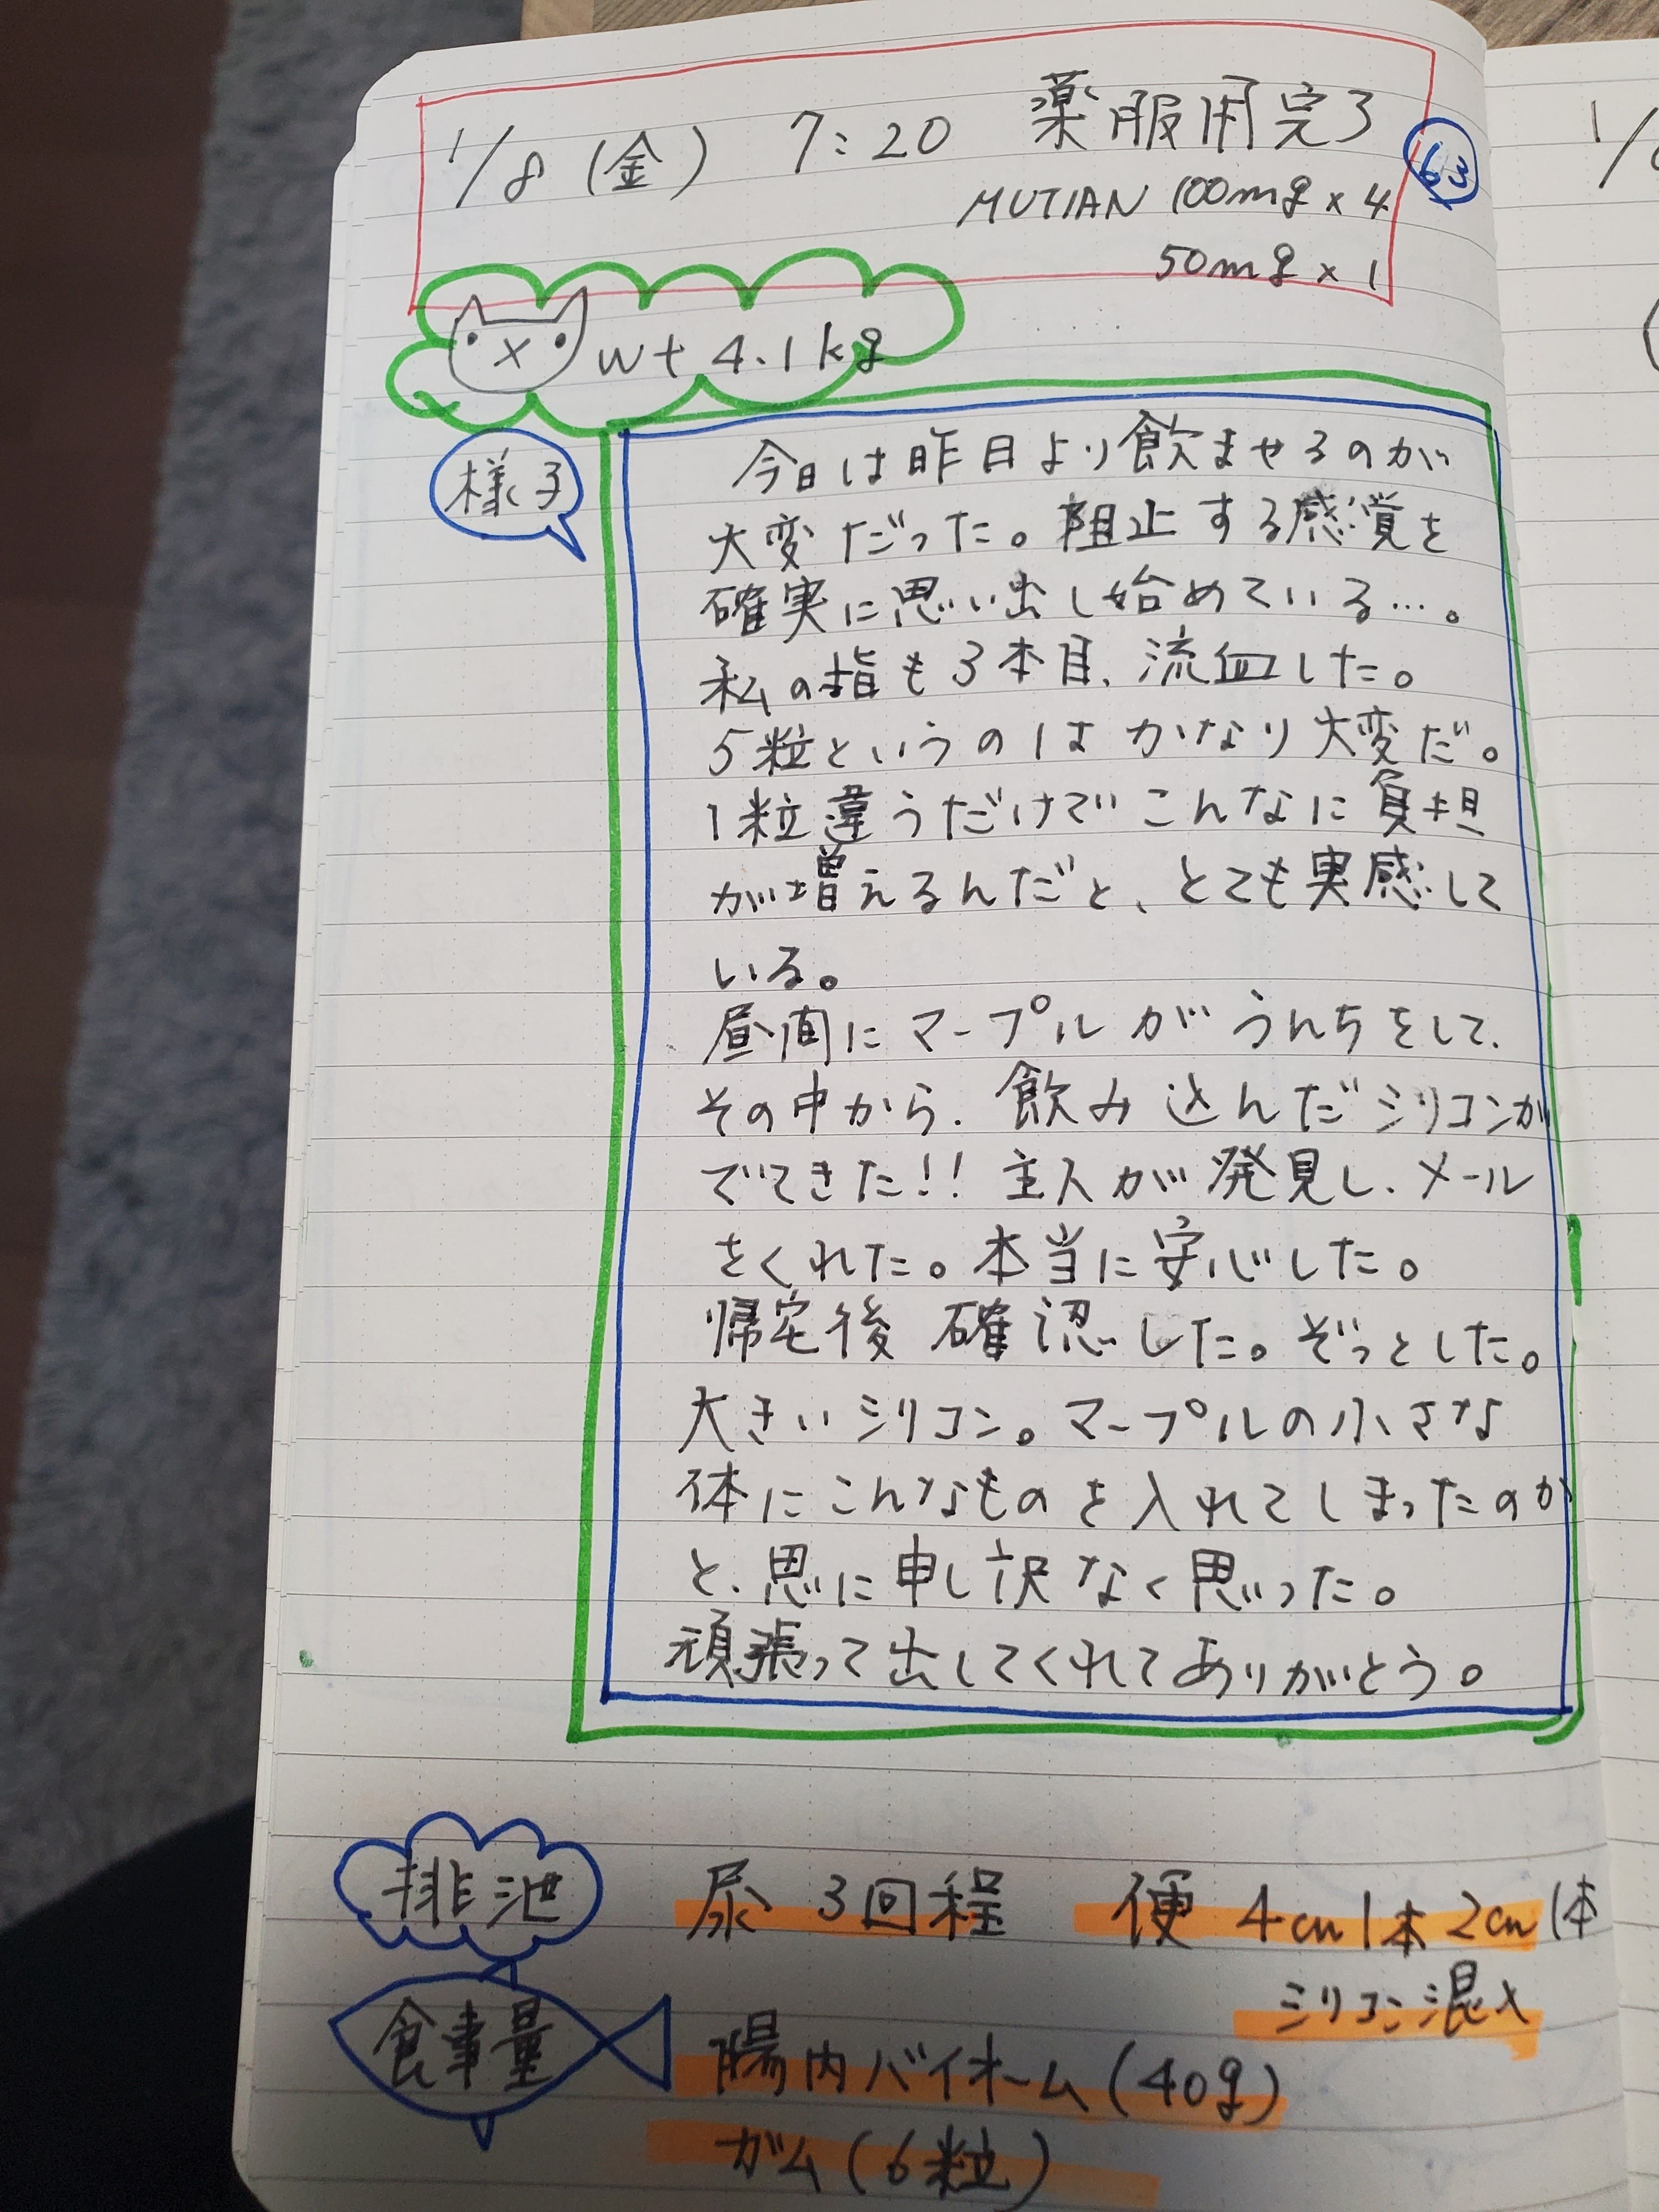 1/8 (金) 7:20 薬服用完了
63
MUTIAN 100mg × 4
50mg × 1
wt 4.1kg
様子
今日は昨日より飲ませるのが
大変だった。阻止する感覚を
確実に思い出し始めている…。
私の指も3本目、流血した。
5粒というのはかなり大変だ。
1粒違うだけでこんなに負担
が増えるんだと、とても実感して
いる。
昼間にマープルがうんちをして、
その中から、飲み込んだシリコンが
でてきた!! 主人が発見し、メール
をくれた。本当に安心した。
帰宅後確認した。ぞっとした。
大きいシリコン。マープルの小さな
体にこんなものを入れてしまったのか
と、思に申し訳なく思った。
頑張って出してくれてありがとう。
排泄 尿 3回程 便 4cm1本 2cm1本
シリコン混入
食事量 腸内バイオーム(40g)
ガム(6粒)
1/